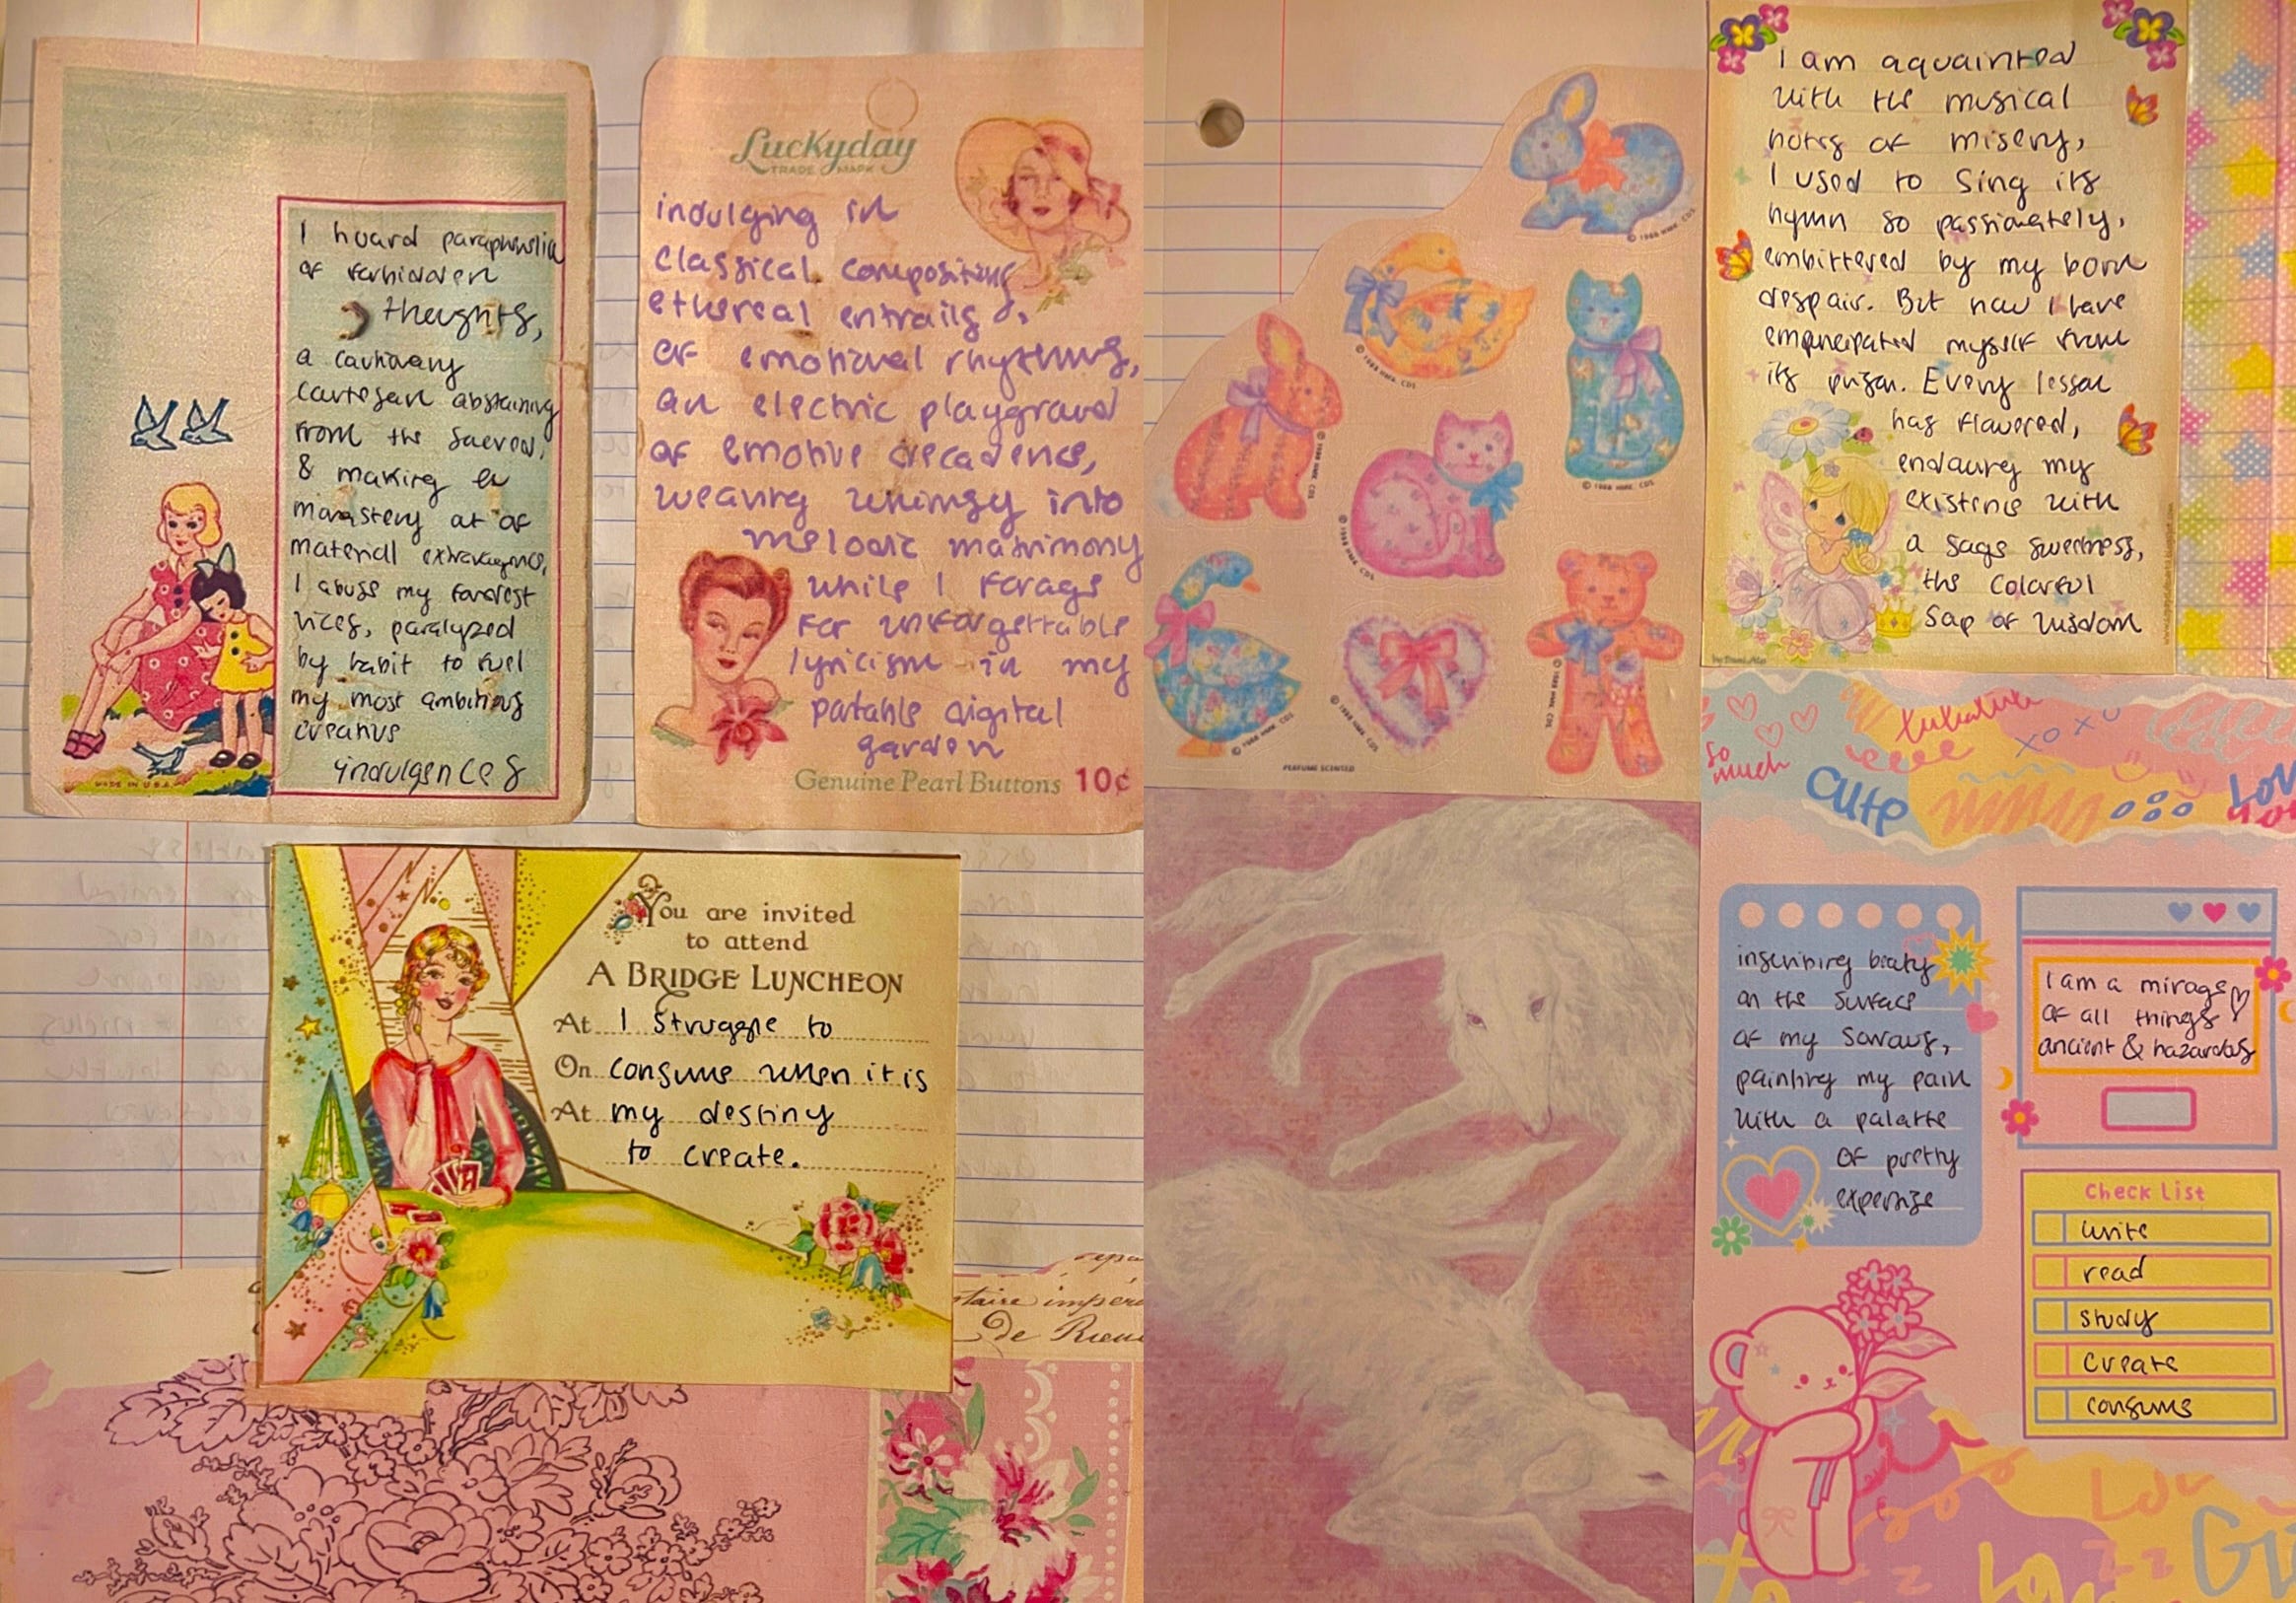 I hoard paraphernalia
of forbidden
thoughts,
a cautionary
courtesan abstaining
from the sacred,
& making a
monastery out of
material extravagance,
I abuse my fondest
vices, paralyzed
by habit to fuel
my most ambitious
creative
indulgences
MADE IN U.S.A.
Luckyday
TRADE MARK
indulging in
classical compositions
ethereal entrails
of emotional rhythms,
an electric playground
of emotive decadence,
weaving whimsy into
melodic matrimony
while I forage
for unforgettable
lyricism in my
potable digital
garden
Genuine Pearl Buttons 10¢
You are invited
to attend
A BRIDGE LUNCHEON
At I struggle to
On consume when it is
At my destiny
to create.
de Rieux
© 1988 HMK. CDS
© 1988 HMK. CDS
© 1988 HMK. CDS
© 1988 HMK. CDS
© 1988 HMK. CDS
© 1988 HMK. CDS
© 1988 HMK. CDS
© 1988 HMK. CDS
PERFUME SCENTED
I am aquainted
with the musical
notes of misery,
I used to sing its
hymn so passionately,
embittered by my born
despair. But now I have
emancipated myself from
its prison. Every lesson
has flavored,
endowing my
existence with
a sage sweetness,
the colorful
sap of wisdom
so
much
cute
xoxo
Lov
inscribing beauty
on the surface
of my sorrows,
painting my pain
with a palatte
of pretty
expertise
I am a mirage
of all things
ancient & hazardous
Check List
write
read
study
create
consume